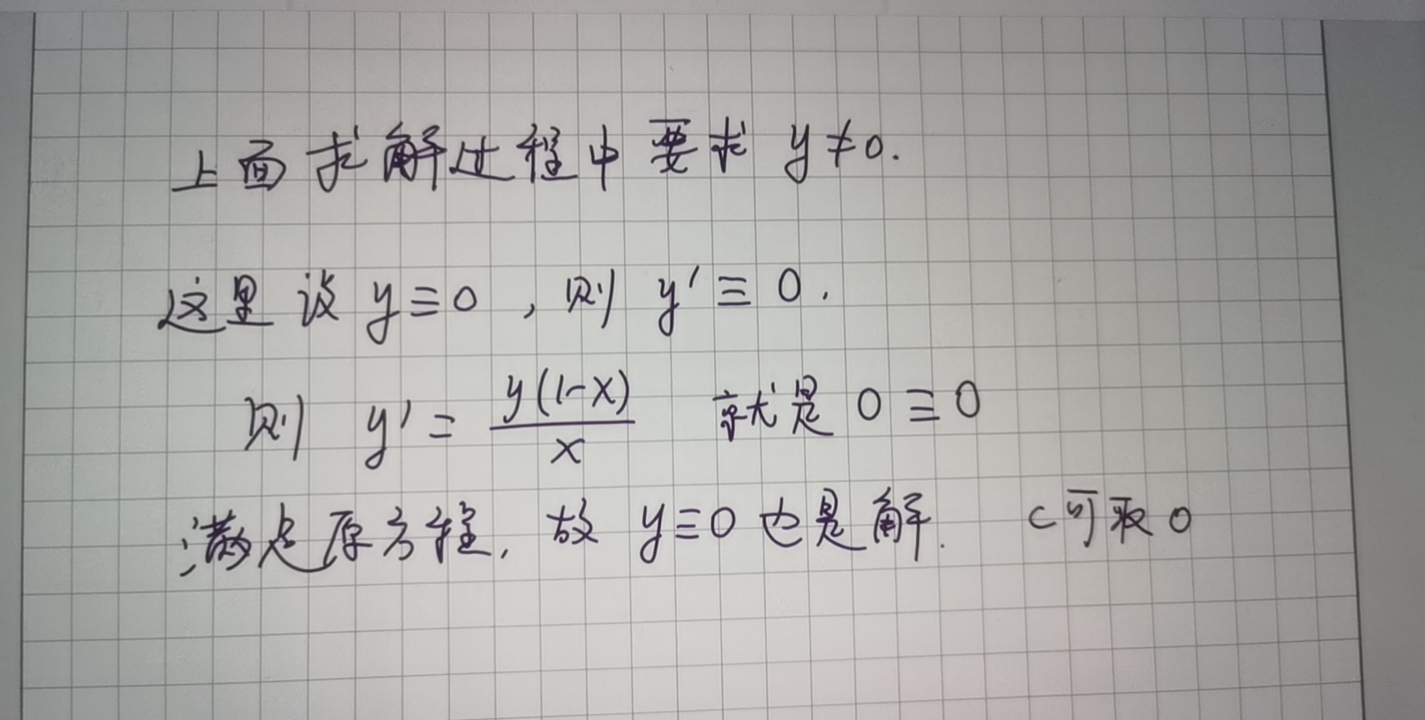 上面求解过程中要求 y≠0.
这里设 y≡0 , 则 y′≡0.
则 y′= y(1-x)/x 就是 0≡0
满足原方程. 故 y≡0 也是解. C可取0